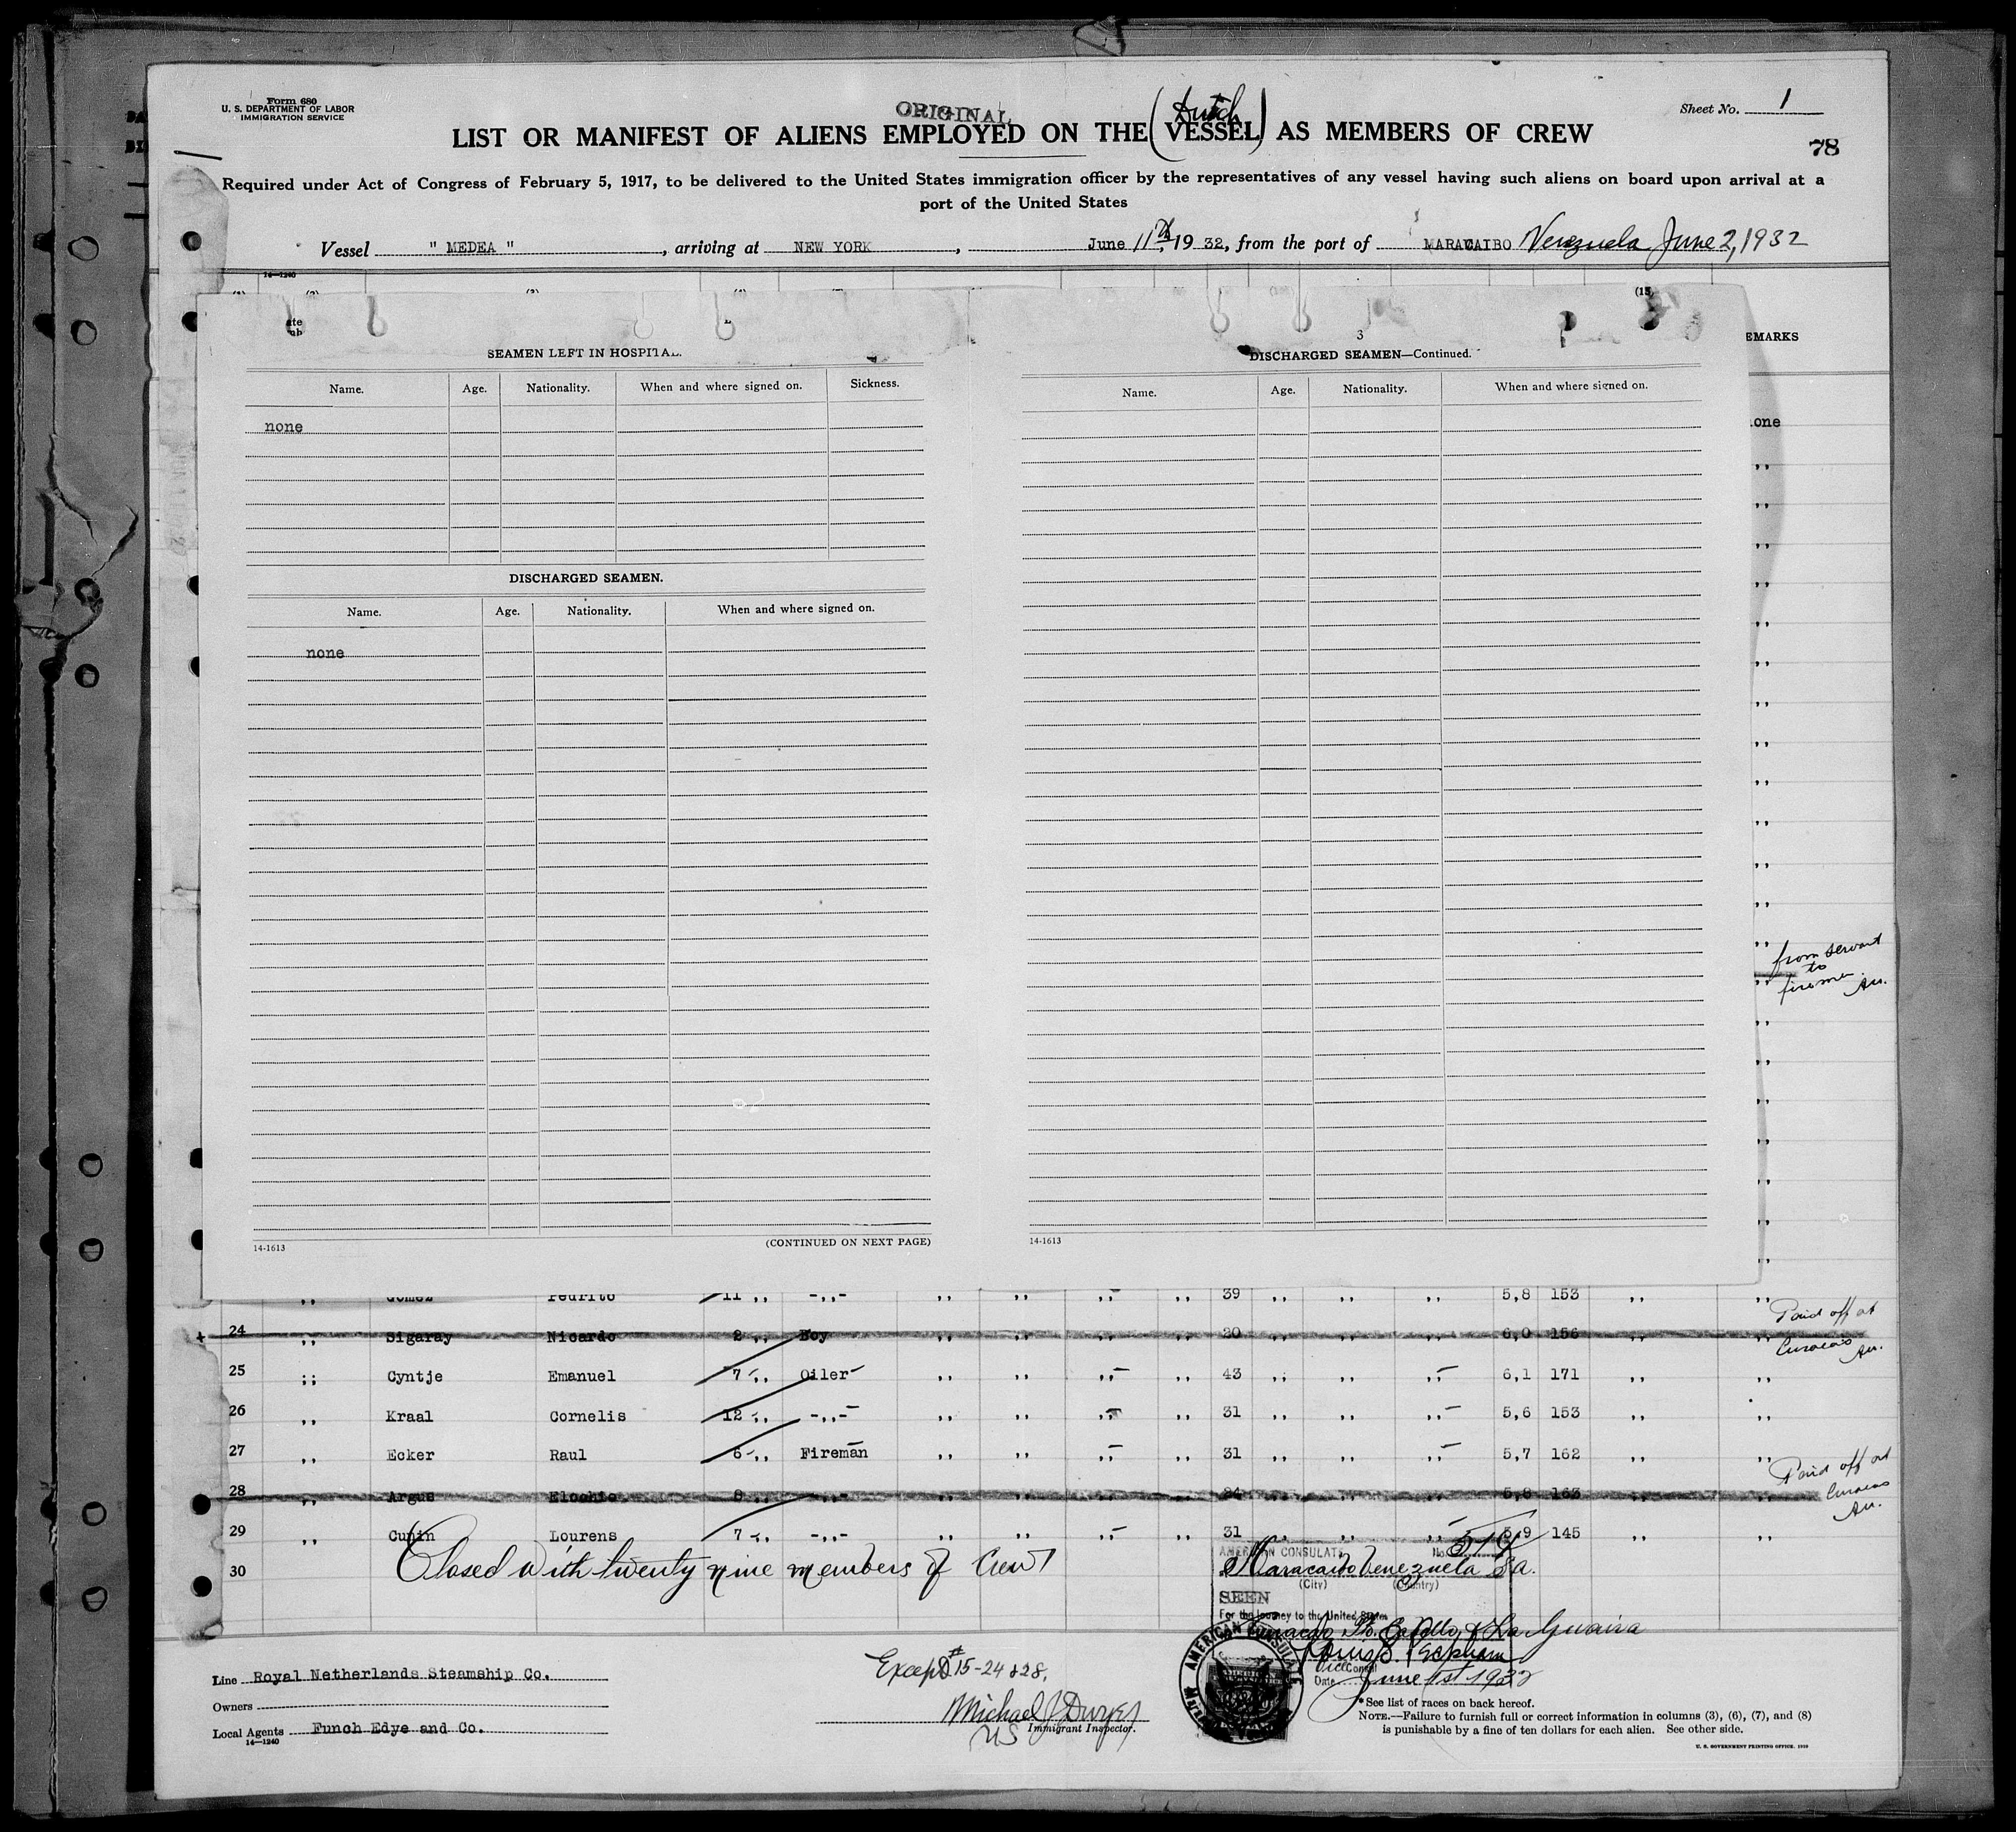 Form 680
U. S. DEPARTMENT OF LABOR
IMMIGRATION SERVICE
ORIGINAL
Dutch
Sheet No. 1
LIST OR MANIFEST OF ALIENS EMPLOYED ON THE (VESSEL) AS MEMBERS OF CREW
78
Required under Act of Congress of February 5, 1917, to be delivered to the United States immigration officer by the representatives of any vessel having such aliens on board upon arrival at a
port of the United States
Vessel " MEDEA ", arriving at NEW YORK, June 11th, 19 32, from the port of MARACAIBO Venezuela June 2, 1932
14-1240
(15)
3
EMARKS
SEAMEN LEFT IN HOSPITAL.
Name. Age. Nationality. When and where signed on. Sickness.
none
DISCHARGED SEAMEN.
Name. Age. Nationality. When and where signed on.
none
14-1613 (CONTINUED ON NEXT PAGE)
DISCHARGED SEAMEN—Continued.
Name. Age. Nationality. When and where signed on.
14-1613
one
,,
,,
,,
,,
,,
,,
,,
,,
,,
,,
,,
,,
,, from servant
to
,, fireman
,,
,,
,,
,,
,,
,,
,,
,, Gomez Pedrito 11 ,, -,,- ,, ,, ,, ,, 39 ,, ,, ,, 5,8 153 ,, ,,
24 ,, Sigaray Nicardo 2 ,, Boy ,, ,, ,, ,, 20 ,, ,, ,, 6,0 156 ,, ,, Paid off at
Curacao
25 ,, Cyntje Emanuel 7 ,, Oiler ,, ,, ,, ,, 43 ,, ,, ,, 6,1 171 ,, ,,
26 ,, Kraal Cornelis 12 ,, -,,- ,, ,, ,, ,, 31 ,, ,, ,, 5,6 153 ,, ,,
27 ,, Ecker Raul 6 ,, Fireman ,, ,, ,, ,, 31 ,, ,, ,, 5,7 162 ,, ,,
28 ,, Argus 8 ,, -,,- ,, ,, ,, ,, 24 ,, ,, ,, 5,8 163 ,, Paid off at
Curacao
29 ,, Cupin Lourens 7 ,, -,,- ,, ,, ,, ,, 31 ,, ,, ,, 5,9 145 ,, ,,
30 Closed with twenty nine members of Crew
AMERICAN CONSULATE No.
Maracaibo Venezuela Sa.
(City) (Country)
SEEN
For the journey to the United States
Curacao, Pto. Cabello, & La Guaira
Vice Consul
Date June 1st 1932
AMERICAN CONSULATE
Line Royal Netherlands Steamship Co.
Owners
Local Agents Funch Edye and Co.
14-1240
Except # 15-24 & 28.
Michael J Dwyer
US Immigrant Inspector.
*See list of races on back hereof.
NOTE.—Failure to furnish full or correct information in columns (3), (6), (7), and (8)
is punishable by a fine of ten dollars for each alien. See other side.
U. S. GOVERNMENT PRINTING OFFICE